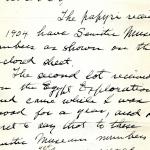 The papyri recei
1904 have Semitic Museum
numbers as shown on the
closed sheet.
The second lot received
the Egypt Exploration
and came while I was
for a year, and
that to these
Semitic Museum numbers